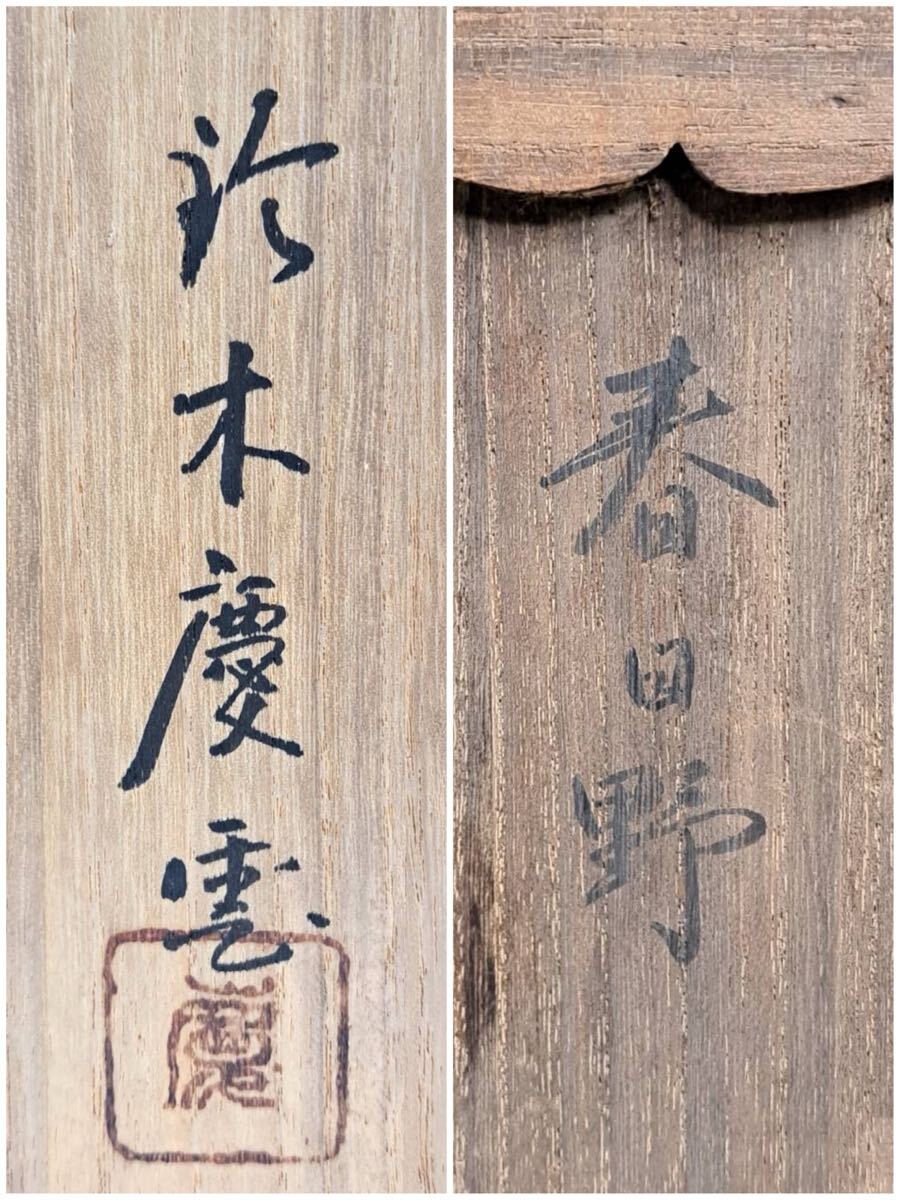 鈴木慶雲
春日野